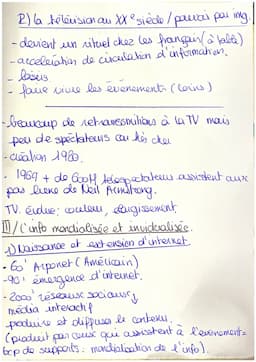 2) la télévision au XXe siècle / pouvoir par img.
- devient un rituel chez les français (à table)
- accélération de circulation d'information.
- loisirs
- faire vivre les évènements (loins)
- beaucoup de retransmissions à la TV mais
peu de spéctateurs car très cher
- création 1920.
- 1969 + de 600M telespectateurs assistent aux
pas lune de Neil Armstrong.
TV. évolue: couleur, élargissement.
II) / L'info mondialisée et invidualisée.
1) Naissance et extension d'internet.
- 60' Arpanet (Américain)
- 90' émergence d'internet.
- 2000' réseaux sociaux
média interactif
produire et diffuse le contenu.
(produit par ceux qui assistent à l'évènement =
bcp de supports: mondialisation de l'info).